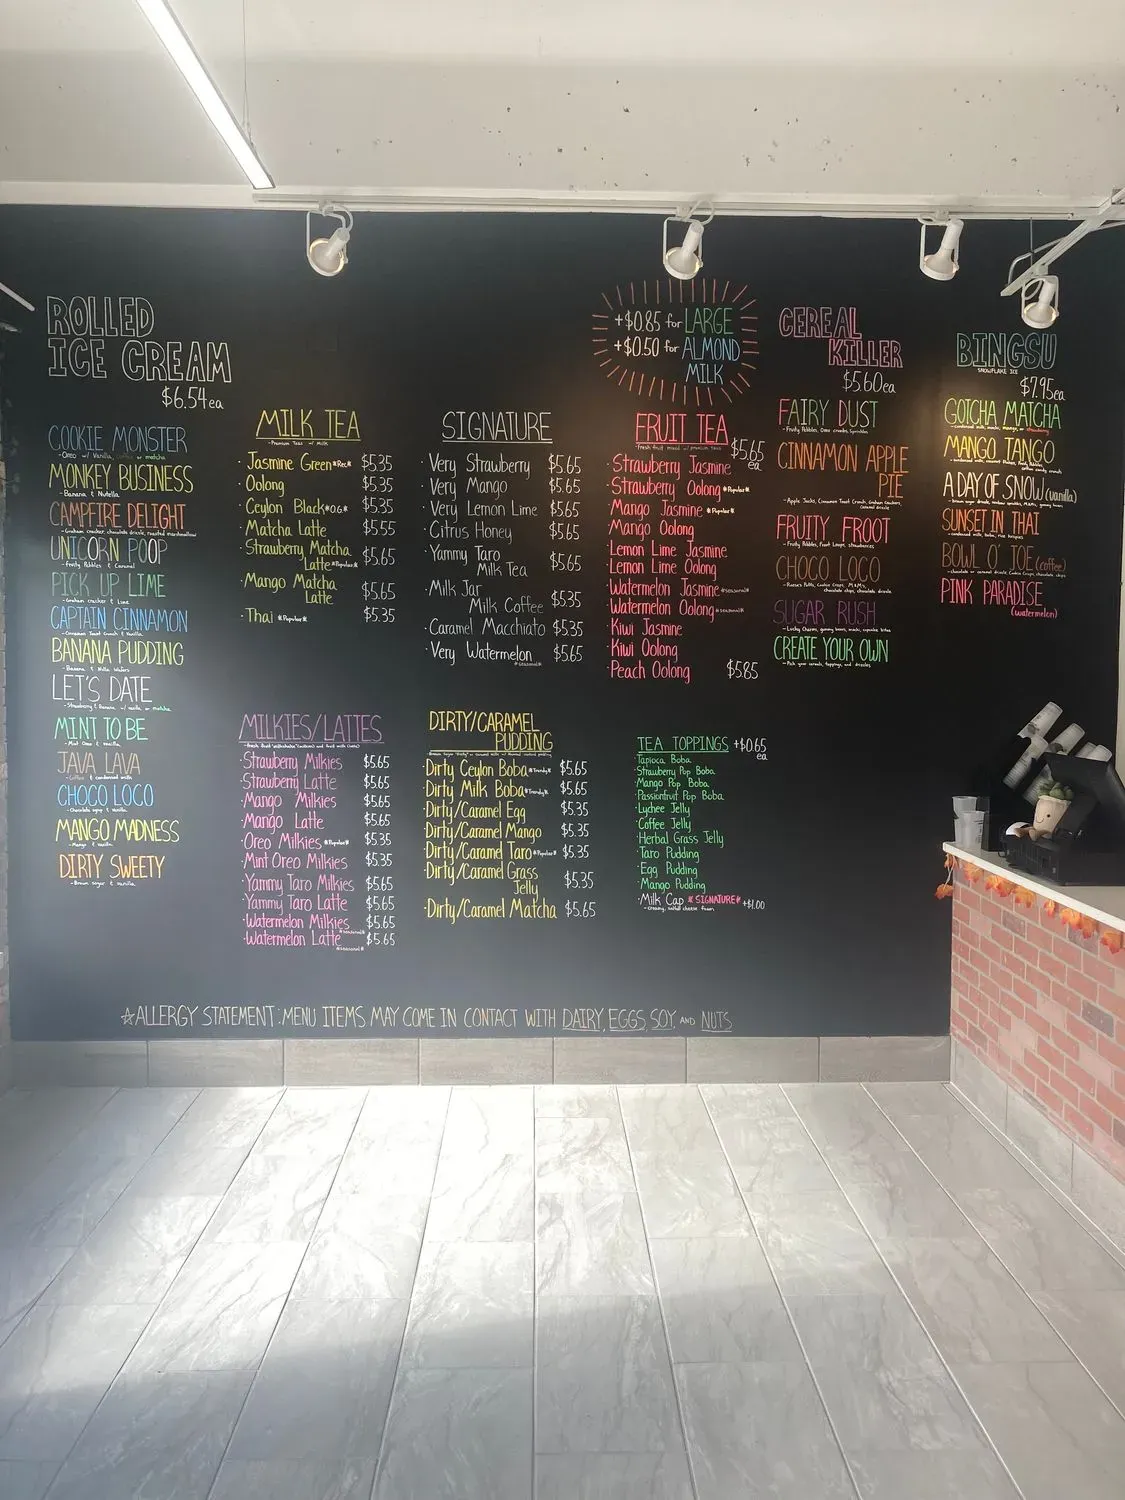 ROLLED
ICE CREAM
$6.54 ea
COOKIE MONSTER
- Oreo w/ Vanilla, coffee or matcha
MONKEY BUSINESS
- Banana & Nutella
CAMPFIRE DELIGHT
- Graham cracker, chocolate drizzle, roasted marshmallow
UNICORN POOP
- Fruity Pebbles & Caramel
PICK UP LIME
- Graham cracker & Lime
CAPTAIN CINNAMON
- Cinnamon Toast Crunch & Vanilla
BANANA PUDDING
- Banana & Nilla Wafers
LET'S DATE
- Strawberry & Banana w/ vanilla or matcha
MINT TO BE
- Mint Oreo & vanilla
JAVA LAVA
- Coffee & condensed milk
CHOCO LOCO
- Chocolate syrup & vanilla
MANGO MADNESS
- Mango & vanilla
DIRTY SWEETY
- Brown sugar & vanilla
MILK TEA
- Premium Teas w/ Milk
· Jasmine Green *Rec* $5.35
· Oolong $5.35
· Ceylon Black *OG* $5.35
· Matcha Latte $5.55
· Strawberry Matcha
Latte *Popular* $5.65
· Mango Matcha
Latte $5.65
· Thai *Popular* $5.35
SIGNATURE
· Very Strawberry $5.65
· Very Mango $5.65
· Very Lemon Lime $5.65
· Citrus Honey $5.65
· Yammy Taro
Milk Tea $5.65
· Milk Jar
Milk Coffee $5.35
· Caramel Macchiato $5.35
· Very Watermelon $5.65
*seasonal*
+$0.85 for LARGE
+$0.50 for ALMOND
MILK
FRUIT TEA
- Fresh fruit mixed w/ premium teas
$5.65
ea
· Strawberry Jasmine
· Strawberry Oolong *Popular*
· Mango Jasmine *Popular*
· Mango Oolong
· Lemon Lime Jasmine
· Lemon Lime Oolong
· Watermelon Jasmine *seasonal*
· Watermelon Oolong *seasonal*
· Kiwi Jasmine
· Kiwi Oolong
· Peach Oolong $5.85
CEREAL
KILLER
$5.60 ea
FAIRY DUST
- Fruity Pebbles, Oreo crumbs, Sprinkles
CINNAMON APPLE
PIE
- Apple Jacks, Cinnamon Toast Crunch, Graham Crackers,
Caramel drizzle
FRUITY FROOT
- Fruity Pebbles, Froot Loops, strawberries
CHOCO LOCO
- Reeses Puffs, Cookie Crisps, M&M's,
chocolate chips, chocolate drizzle
SUGAR RUSH
- Lucky Charms, gummy bears, mochi, cupcake bites
CREATE YOUR OWN
- Pick your cereals, toppings, and drizzles
BINGSU
SNOWFLAKE ICE
$7.95 ea
GOTCHA MATCHA
MANGO TANGO
A DAY OF SNOW (vanilla)
SUNSET IN THAI
BOWL O' JOE (coffee)
PINK PARADISE
(watermelon)
MILKIES/LATTES
· Strawberry Milkies $5.65
· Strawberry Latte $5.65
· Mango Milkies $5.65
· Mango Latte $5.65
· Oreo Milkies *Popular* $5.35
· Mint Oreo Milkies $5.35
· Yammy Taro Milkies $5.65
· Yammy Taro Latte $5.65
· Watermelon Milkies $5.65
*seasonal*
· Watermelon Latte $5.65
*seasonal*
DIRTY/CARAMEL
PUDDING
· Dirty Ceylon Boba *Trendy* $5.65
· Dirty Milk Boba *Trendy* $5.65
· Dirty/Caramel Egg $5.35
· Dirty/Caramel Mango $5.35
· Dirty/Caramel Taro *Popular* $5.35
· Dirty/Caramel Grass
Jelly $5.35
· Dirty/Caramel Matcha $5.65
TEA TOPPINGS +$0.65
ea
· Tapioca Boba
· Strawberry Pop Boba
· Mango Pop Boba
· Passionfruit Pop Boba
· Lychee Jelly
· Coffee Jelly
· Herbal Grass Jelly
· Taro Pudding
· Egg Pudding
· Mango Pudding
· Milk Cap *SIGNATURE* +$1.00
- creamy, salted cheese foam
☆ALLERGY STATEMENT: MENU ITEMS MAY COME IN CONTACT WITH DAIRY, EGGS, SOY, AND NUTS